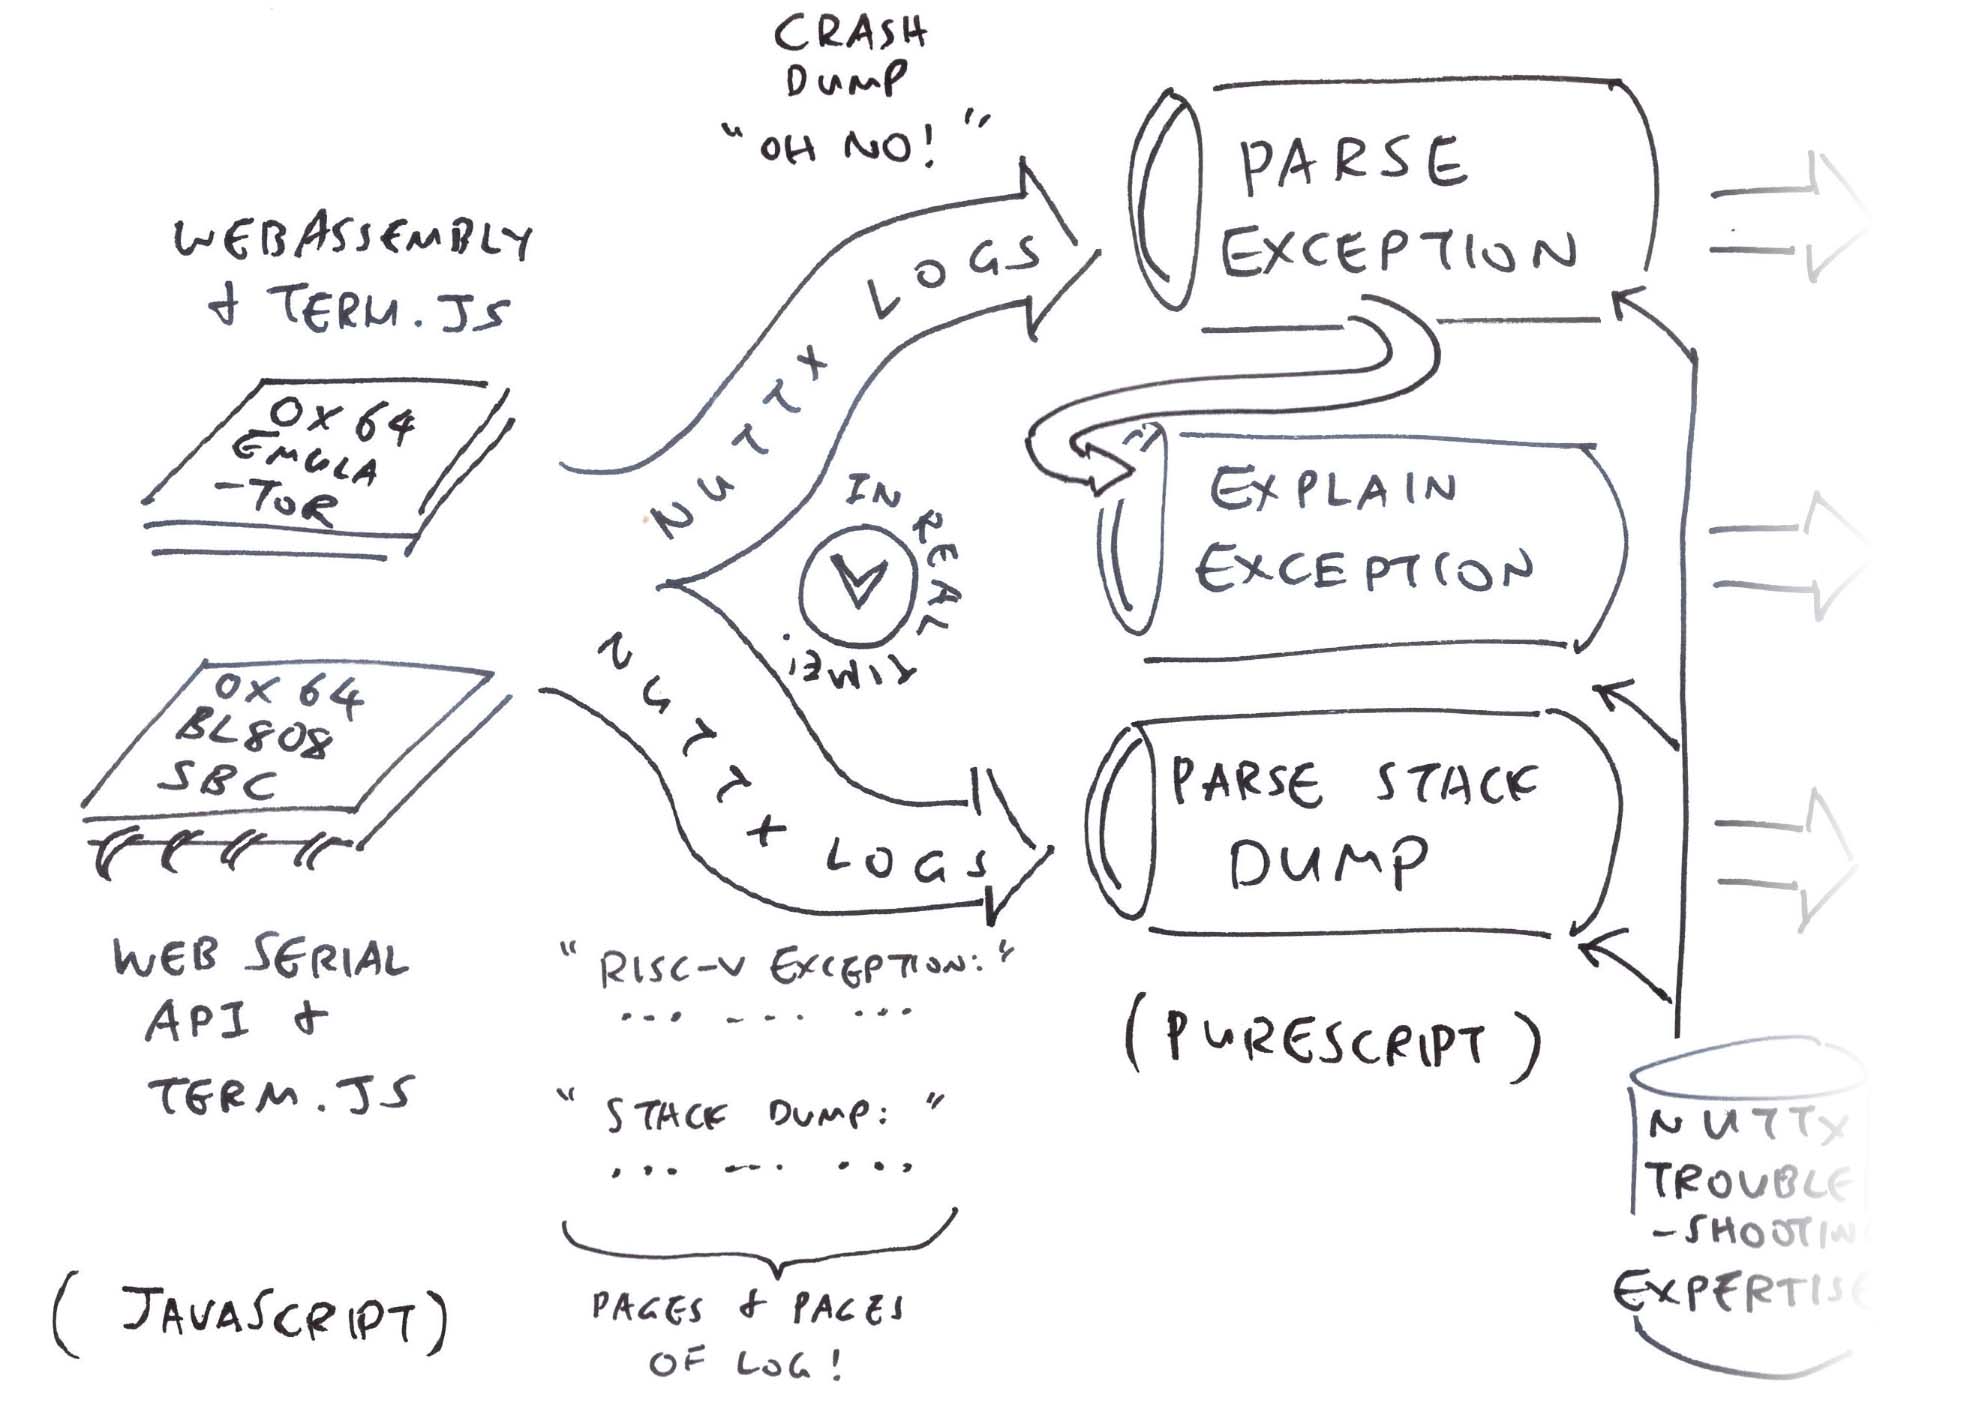 CRASH
DUMP
"OH NO!"
WEBASSEMBLY
& TERM.JS
OX64
EMULA
-TOR
NUTTX LOGS
PARSE
EXCEPTION
IN REAL TIME!
EXPLAIN
EXCEPTION
OX64
BL808
SBC
NUTTX LOGS
PARSE STACK
DUMP
WEB SERIAL
API &
TERM.JS
"RISC-V EXCEPTION:"
... ... ...
"STACK DUMP:"
... ... ...
PAGES & PAGES
OF LOG!
(JAVASCRIPT)
(PURESCRIPT)
NUTTX
TROUBLE
-SHOOTIN
EXPERTISE